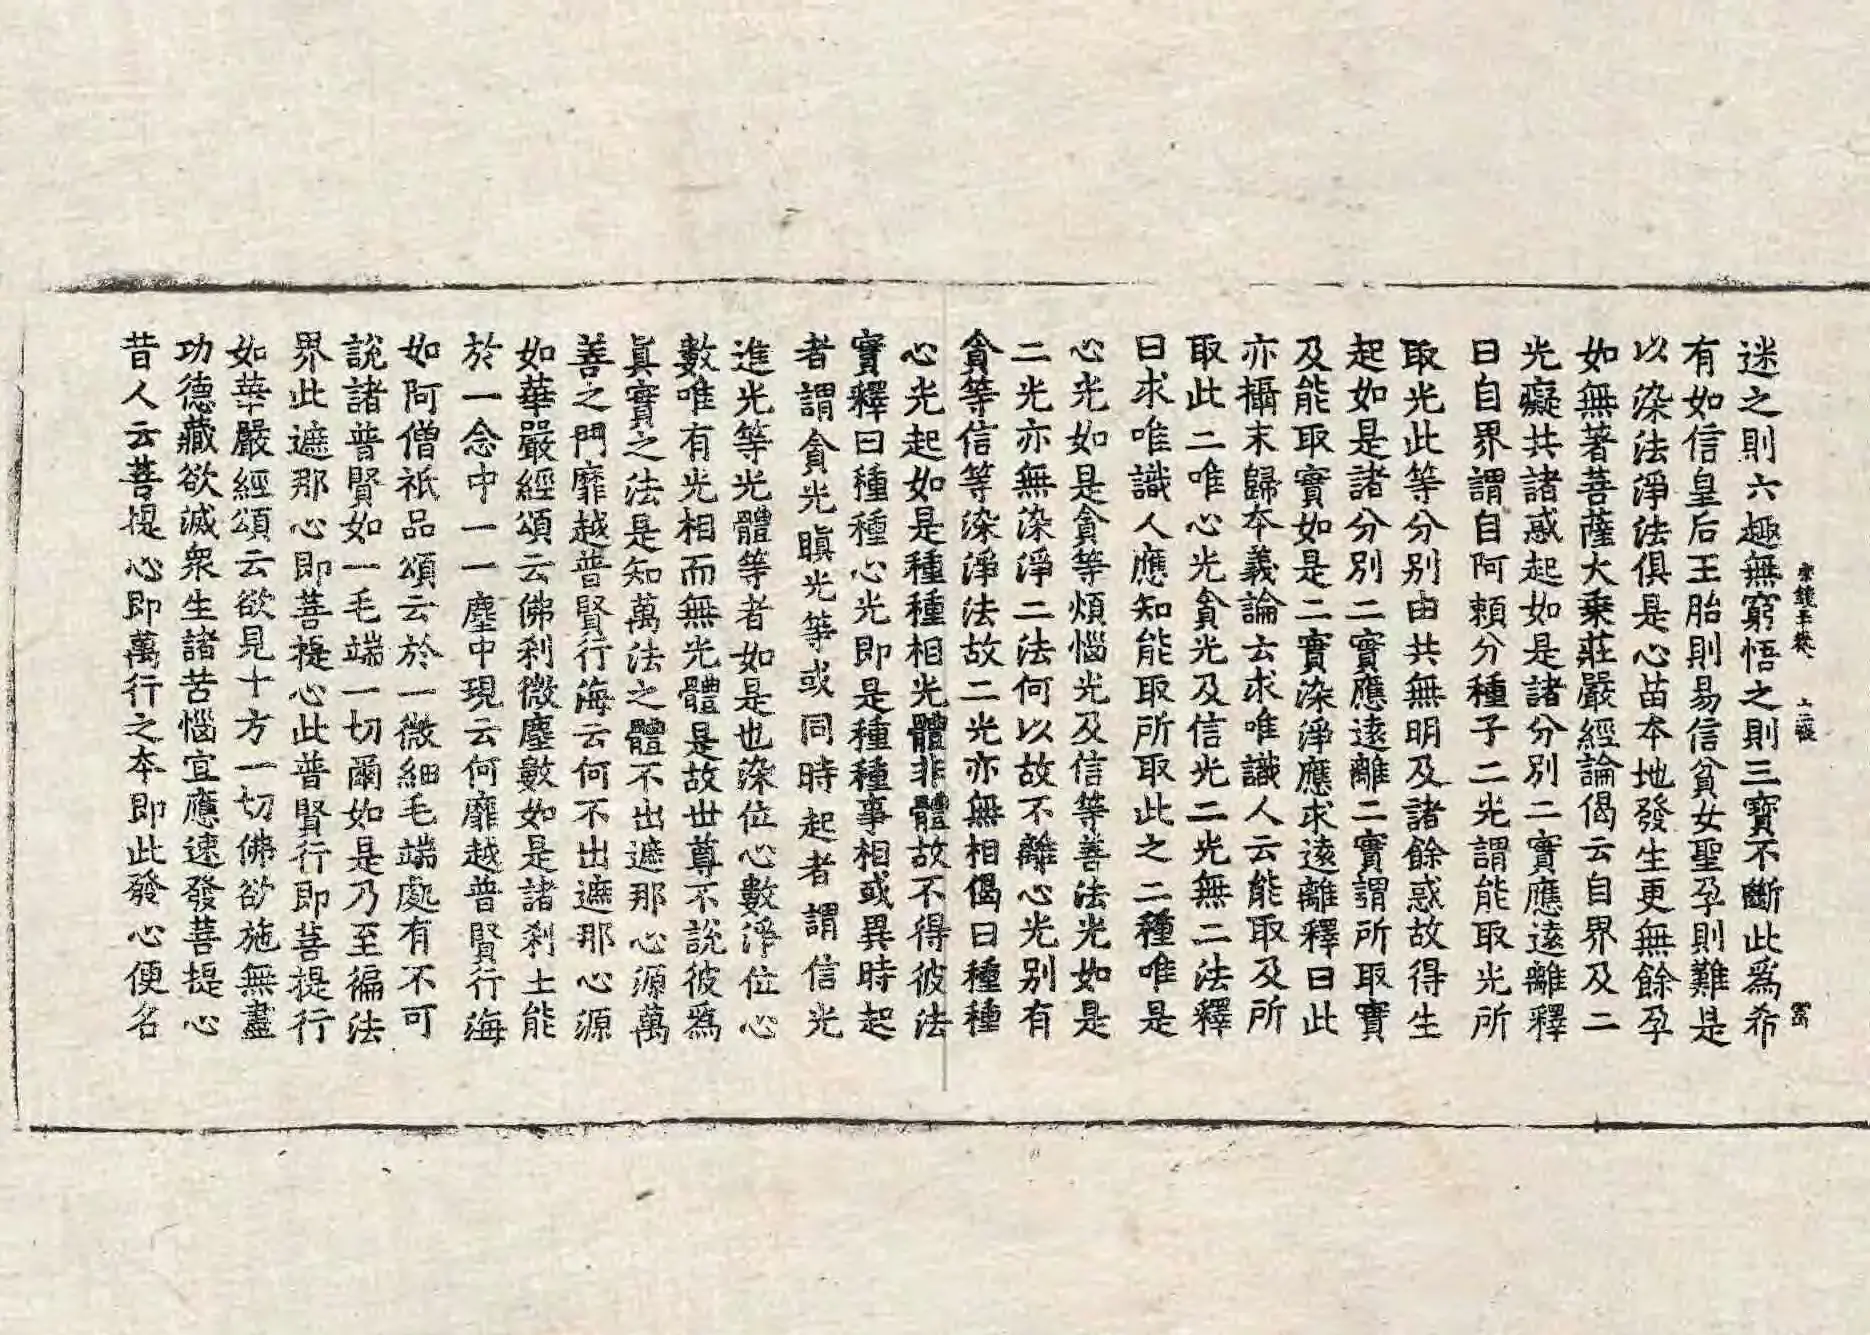 宗鏡五卷 上二張 富
迷之則六趣無窮悟之則三寶不斷此爲希
有如信皇后王胎則易信貧女聖孕則難是
以染法淨法俱是心苗本地發生更無餘孕
如無著菩薩大乗莊嚴經論偈云自界及二
光癡共諸惑起如是諸分別二實應遠離釋
曰自界謂自阿賴分種子二光謂能取光所
取光此等分別由共無明及諸餘惑故得生
起如是諸分別二實應遠離二實謂所取實
及能取實如是二實染淨應求遠離釋曰此
亦攝末歸本義論云求唯識人云能取及所
取此二唯心光貪光及信光二光無二法釋
曰求唯識人應知能取所取此之二種唯是
心光如是貪等煩惱光及信等善法光如是
二光亦無染淨二法何以故不離心光别有
貪等信等染淨法故二光亦無相偈曰種種
心光起如是種種相光體非體故不得彼法
實釋曰種種心光即是種種事相或異時起
者謂貪光瞋光等或同時起者謂信光
進光等光體等者如是也染位心數淨位心
數唯有光相而無光體是故世尊不說彼爲
眞實之法是知萬法之體不出遮那心源萬
善之門靡越普賢行海云何不出遮那心源
如華嚴經頌云佛刹微塵數如是諸刹土能
於一念中一一塵中現云何靡越普賢行海
如阿僧祇品頌云於一微細毛端處有不可
說諸普賢如一毛端一切爾如是乃至徧法
界此遮那心即菩提心此普賢行即菩提行
如華嚴經頌云欲見十方一切佛欲施無盡
功德藏欲滅衆生諸苦惱宜應速發菩提心
昔人云菩提心即萬行之本即此發心便名